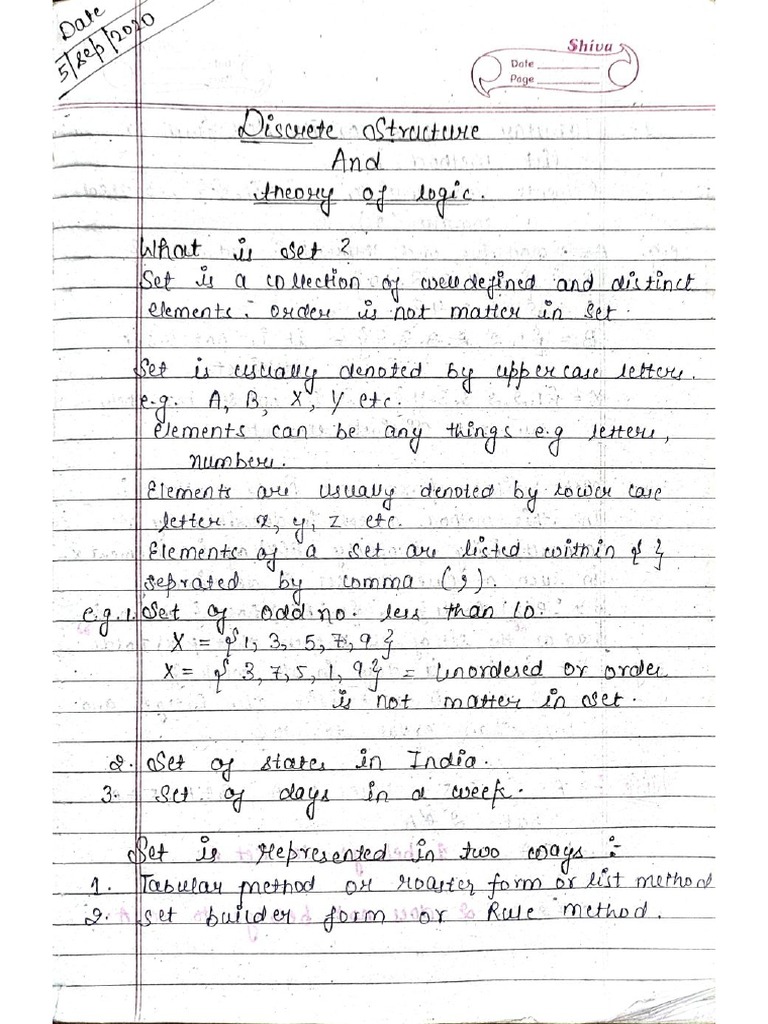 Date
5/Sep/2020
Shiva
Date
Page
Discrete Structure
And
theory of logic.
What is set ?
Set is a collection of welldefined and distinct
elements. order is not matter in set.
Set is usually denoted by uppercase letters.
e.g. A, B, X, Y etc.
elements can be any things e.g letters,
numbers.
Elements are usually denoted by lower case
letter x, y, z etc.
Elements of a set are listed within { }
seprated by comma (,)
e.g.1. Set of odd no. less than 10.
X = {1, 3, 5, 7, 9}
X = {3, 7, 5, 1, 9} = Unordered or order
is not matter in set.
2. Set of states in India.
3. Set of days in a week.
Set is represented in two ways :-
1. Tabular method or roaster form or list method
2. set builder form or Rule method.